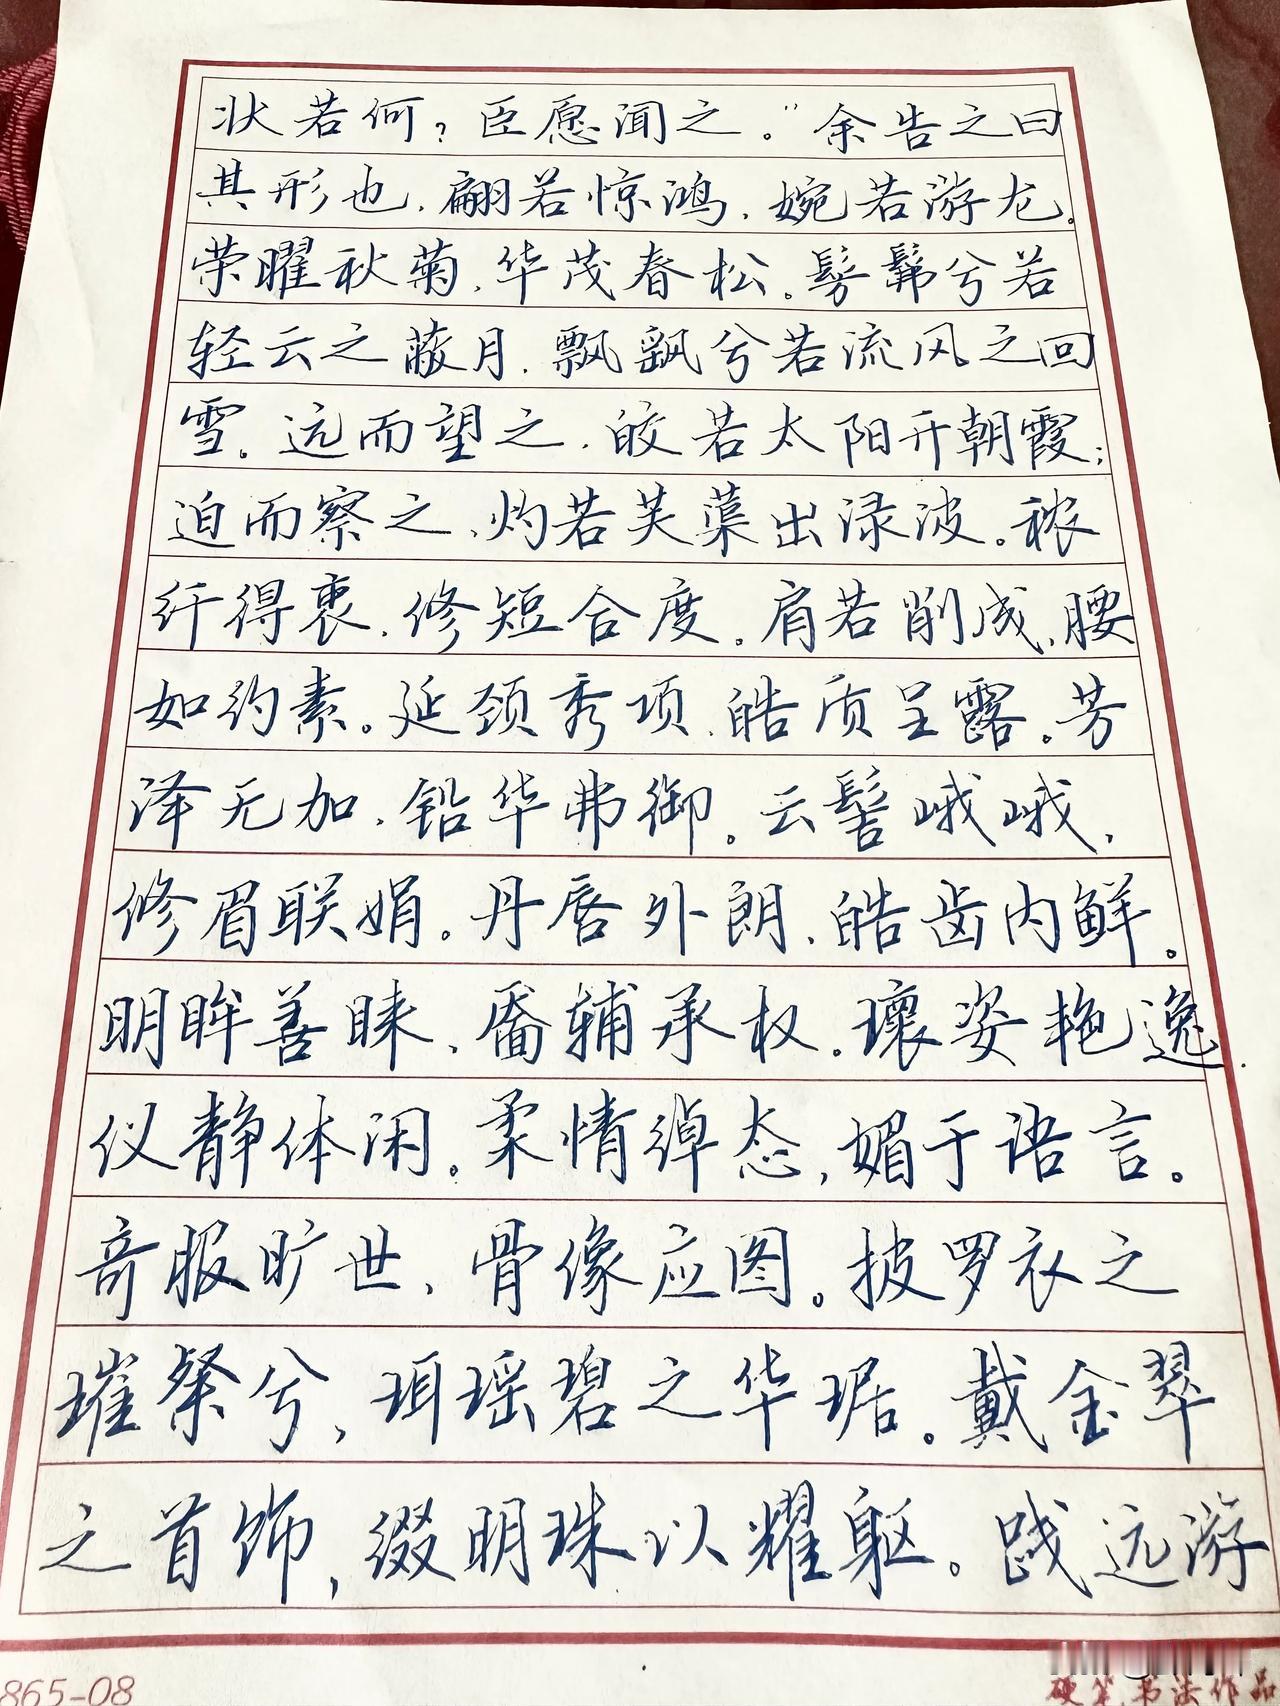 状若何？臣愿闻之。”余告之曰
其形也，翩若惊鸿，婉若游龙。
荣曜秋菊，华茂春松。髣髴兮若
轻云之蔽月，飘飖兮若流风之回
雪。远而望之，皎若太阳升朝霞；
迫而察之，灼若芙蕖出渌波。秾
纤得衷，修短合度。肩若削成，腰
如约素。延颈秀项，皓质呈露。芳
泽无加，铅华弗御。云髻峨峨，
修眉联娟。丹唇外朗，皓齿内鲜。
明眸善睐，靥辅承权。瓌姿艳逸，
仪静体闲。柔情绰态，媚于语言。
奇服旷世，骨像应图。披罗衣之
璀粲兮，珥瑶碧之华琚。戴金翠
之首饰，缀明珠以耀躯。践远游
865-08
硬笔书法作品